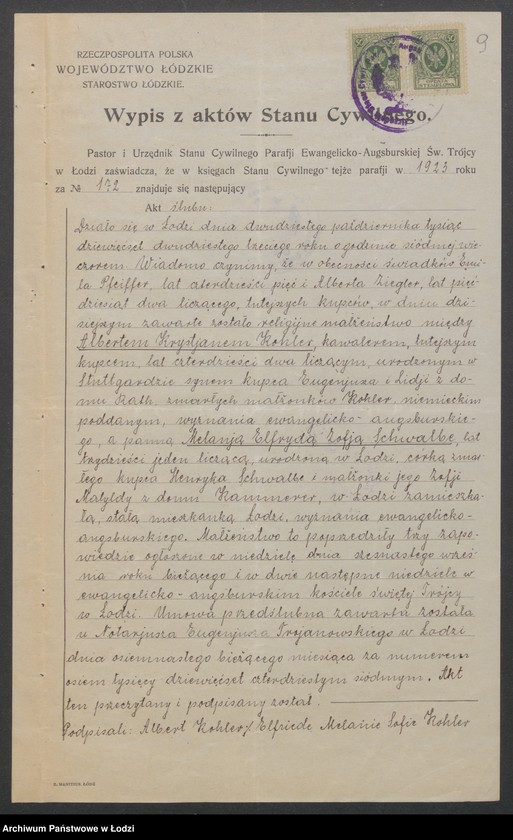 9
RZECZPOSPOLITA POLSKA
WOJEWÓDZTWO ŁÓDZKIE
STAROSTWO ŁÓDZKIE.
Wypis z aktów Stanu Cywilnego.
Pastor i Urzędnik Stanu Cywilnego Parafji Ewangelicko-Augsburskiej Św. Trójcy
w Łodzi zaświadcza, że w księgach Stanu Cywilnego tejże parafji w 1923 roku
za № 172 znajduje się następujący
Akt ślubu:
Działo się w Łodzi dnia dwudziestego października tysiąc
dziewięćset dwudziestego trzeciego roku o godzinie siódmej wie-
czorem. Wiadomo czynimy, że w obecności świadków Emi-
la Pfeiffer, lat czterdzieści pięć i Alberta Ziegler, lat pięć-
dziesiąt dwa liczącego, tutejszych kupców, w dniu dzi-
siejszym zawarte zostało religijne małżeństwo między
Albertem Krystjanem Kohler, kawalerem, tutejszym
kupcem, lat czterdzieści dwa liczącym, urodzonym w
Stuttgardzie synem kupca Eugenjusza i Lidji z do-
mu Rath, zmarłych małżonków Kohler, niemieckim
poddanym, wyznania ewangelicko-augsburskie-
go, a panną Melanją Elfrydą Zofją Schwalbe, lat
trzydzieści jeden liczącą, urodzoną w Łodzi, córką zmar-
łego kupca Henryka Schwalbe i małżonki jego Zofji
Matyldy z domu Kammerer, w Łodzi zamieszka-
łą, stałą mieszkanką Łodzi, wyznania ewangelicko-
augsburskiego. Małżeństwo to poprzedziły trzy zapo-
wiedzie ogłoszone w niedzielę dnia szesnastego wrześ-
nia roku bieżącego i w dwie następne niedziele w
ewangelicko-augsburskim kościele świętej Trójcy
w Łodzi. Umowa przedślubna zawarta została
u Notarjusza Eugenjusza Trojanowskiego w Łodzi
dnia osiemnastego bieżącego miesiąca za numerem
osiem tysięcy dziewięćset czterdziestym siódmym. Akt
ten przeczytany i podpisany został.
Podpisali: Albert Kohler, Elfriede Melanie Sofie Kohler
Archiwum Państwowe w Łodzi